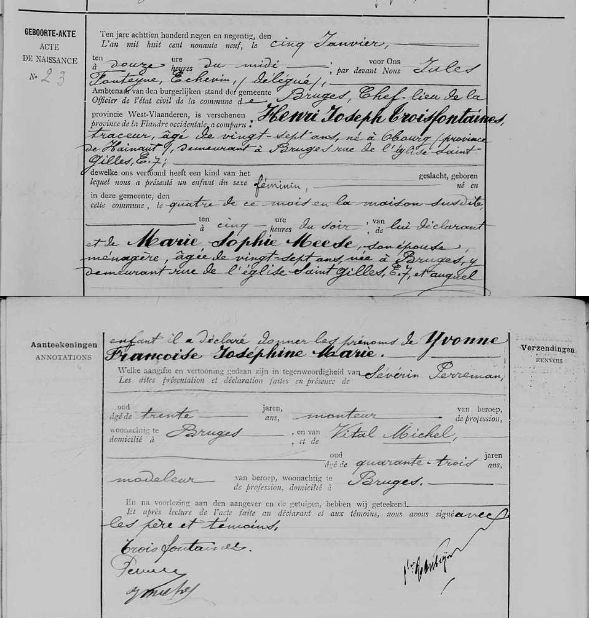 GEBOORTE-AKTE
ACTE
DE NAISSANCE
N° 23
Ten jare achttien honderd negen en negentig, den
L'an mil huit cent nonante neuf, le cinq Janvier,
ten ure voor Ons
à douze heures du midi, par devant Nous Jules
Fonteyne, Echevin, délégué,
Ambtenaar van den burgerlijken stand der gemeente
Officier de l'état civil de la commune de Bruges, Chef-lieu de la
provincie West-Vlaanderen, is verschenen
province de la Flandre occidentale, a comparu: Henri Joseph Troisfontaines,
traceur, âgé de vingt-sept ans, né à Obourg (province
de Hainaut), demeurant à Bruges rue de l'église Saint-
Gilles, E.7;
dewelke ons vertoond heeft een kind van het geslacht, geboren
lequel nous a présenté un enfant du sexe féminin, né en
in deze gemeente, den
cette commune, le quatre de ce mois en la maison susdite
ten ure van
à cinq heures du soir, de lui déclarant
et de Marie Sophie Meese, son épouse,
ménagère, âgée de vingt-sept ans, née à Bruges, y
demeurant rue de l'église Saint Gilles, E.7, et auquel
Aanteekeningen
ANNOTATIONS
Verzendingen
RENVOIS
enfant il a déclaré donner les prénoms de Yvonne
Françoise Joséphine Marie.
Welke aangifte en vertooning gedaan zijn in tegenwoordigheid van
Les dites présentation et déclaration faites en présence de Sévérin Perreman,
oud jaren, van beroep,
âgé de trente ans, monteur de profession,
woonachtig te en van
domicilié à Bruges, et de Vital Michel,
oud jaren
âgé de quarante-trois ans,
modeleur van beroep, woonachtig te
de profession, domicilié à Bruges.
En na voorlezing aan den aangever en de getuigen, hebben wij geteekend
Et après lecture de l'acte faite au déclarant et aux témoins, nous avons signé avec
les père et témoins,
Troisfontaines.